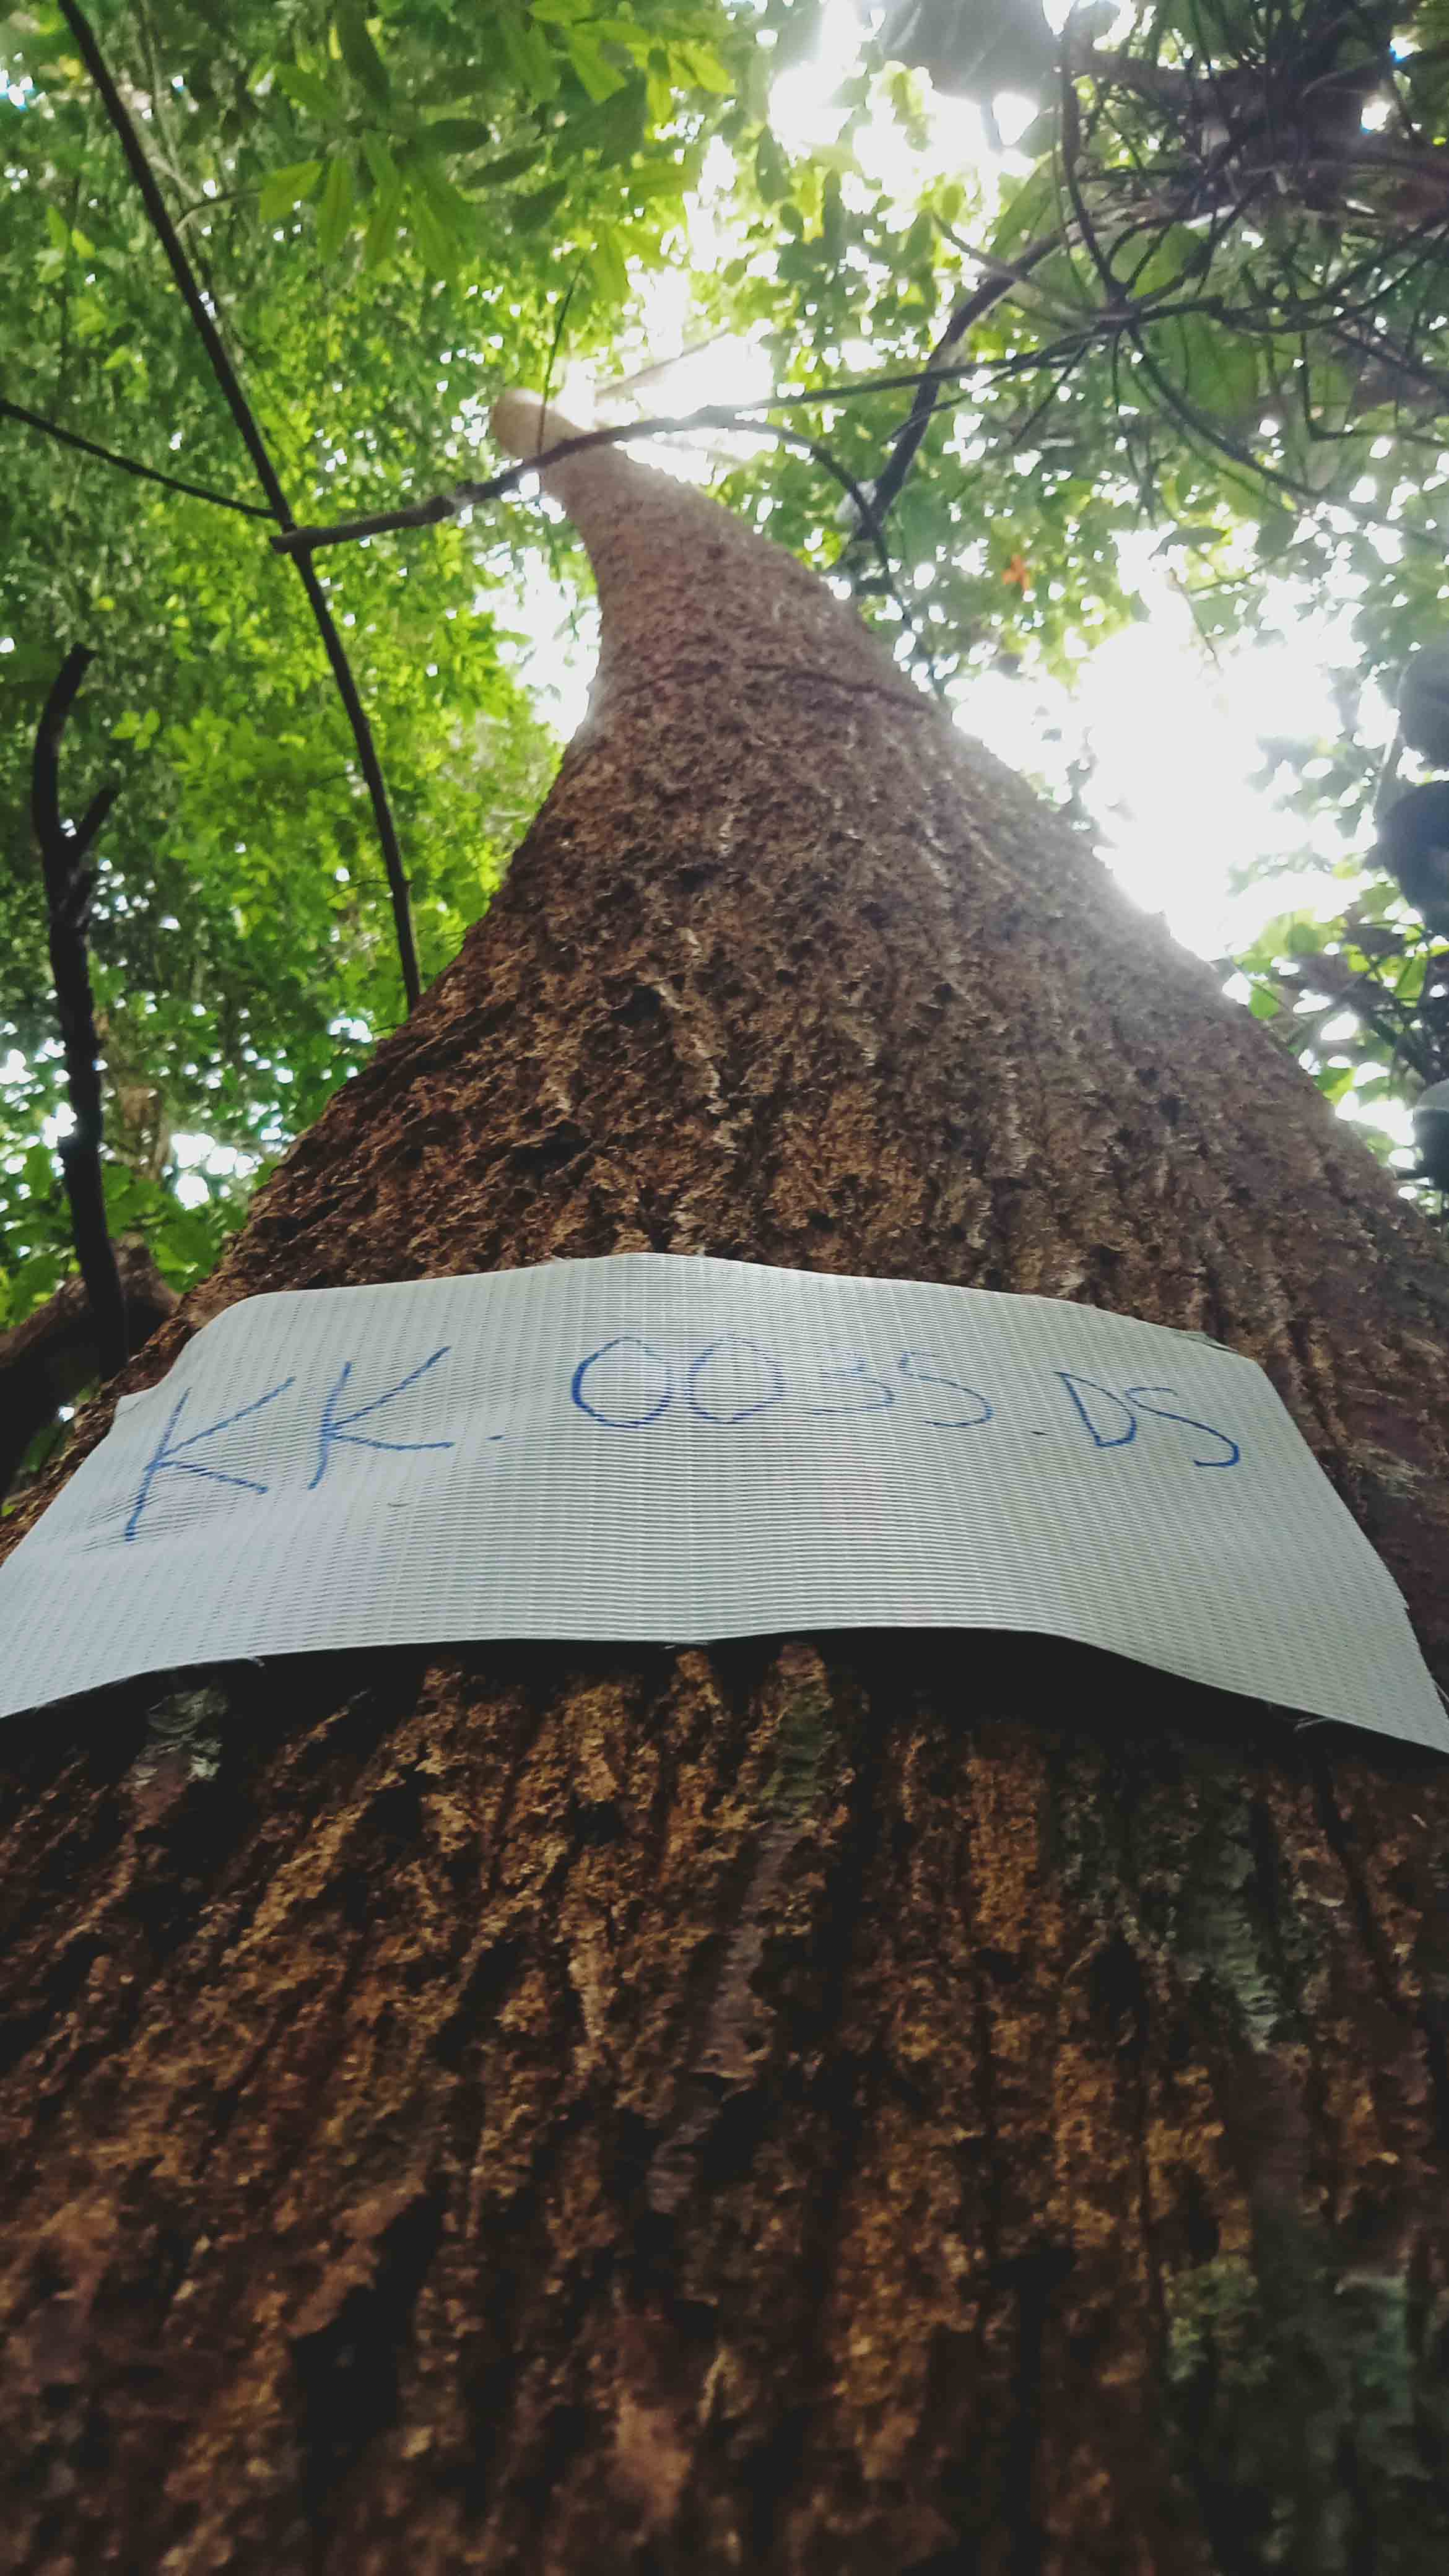 KK. 0035.DS